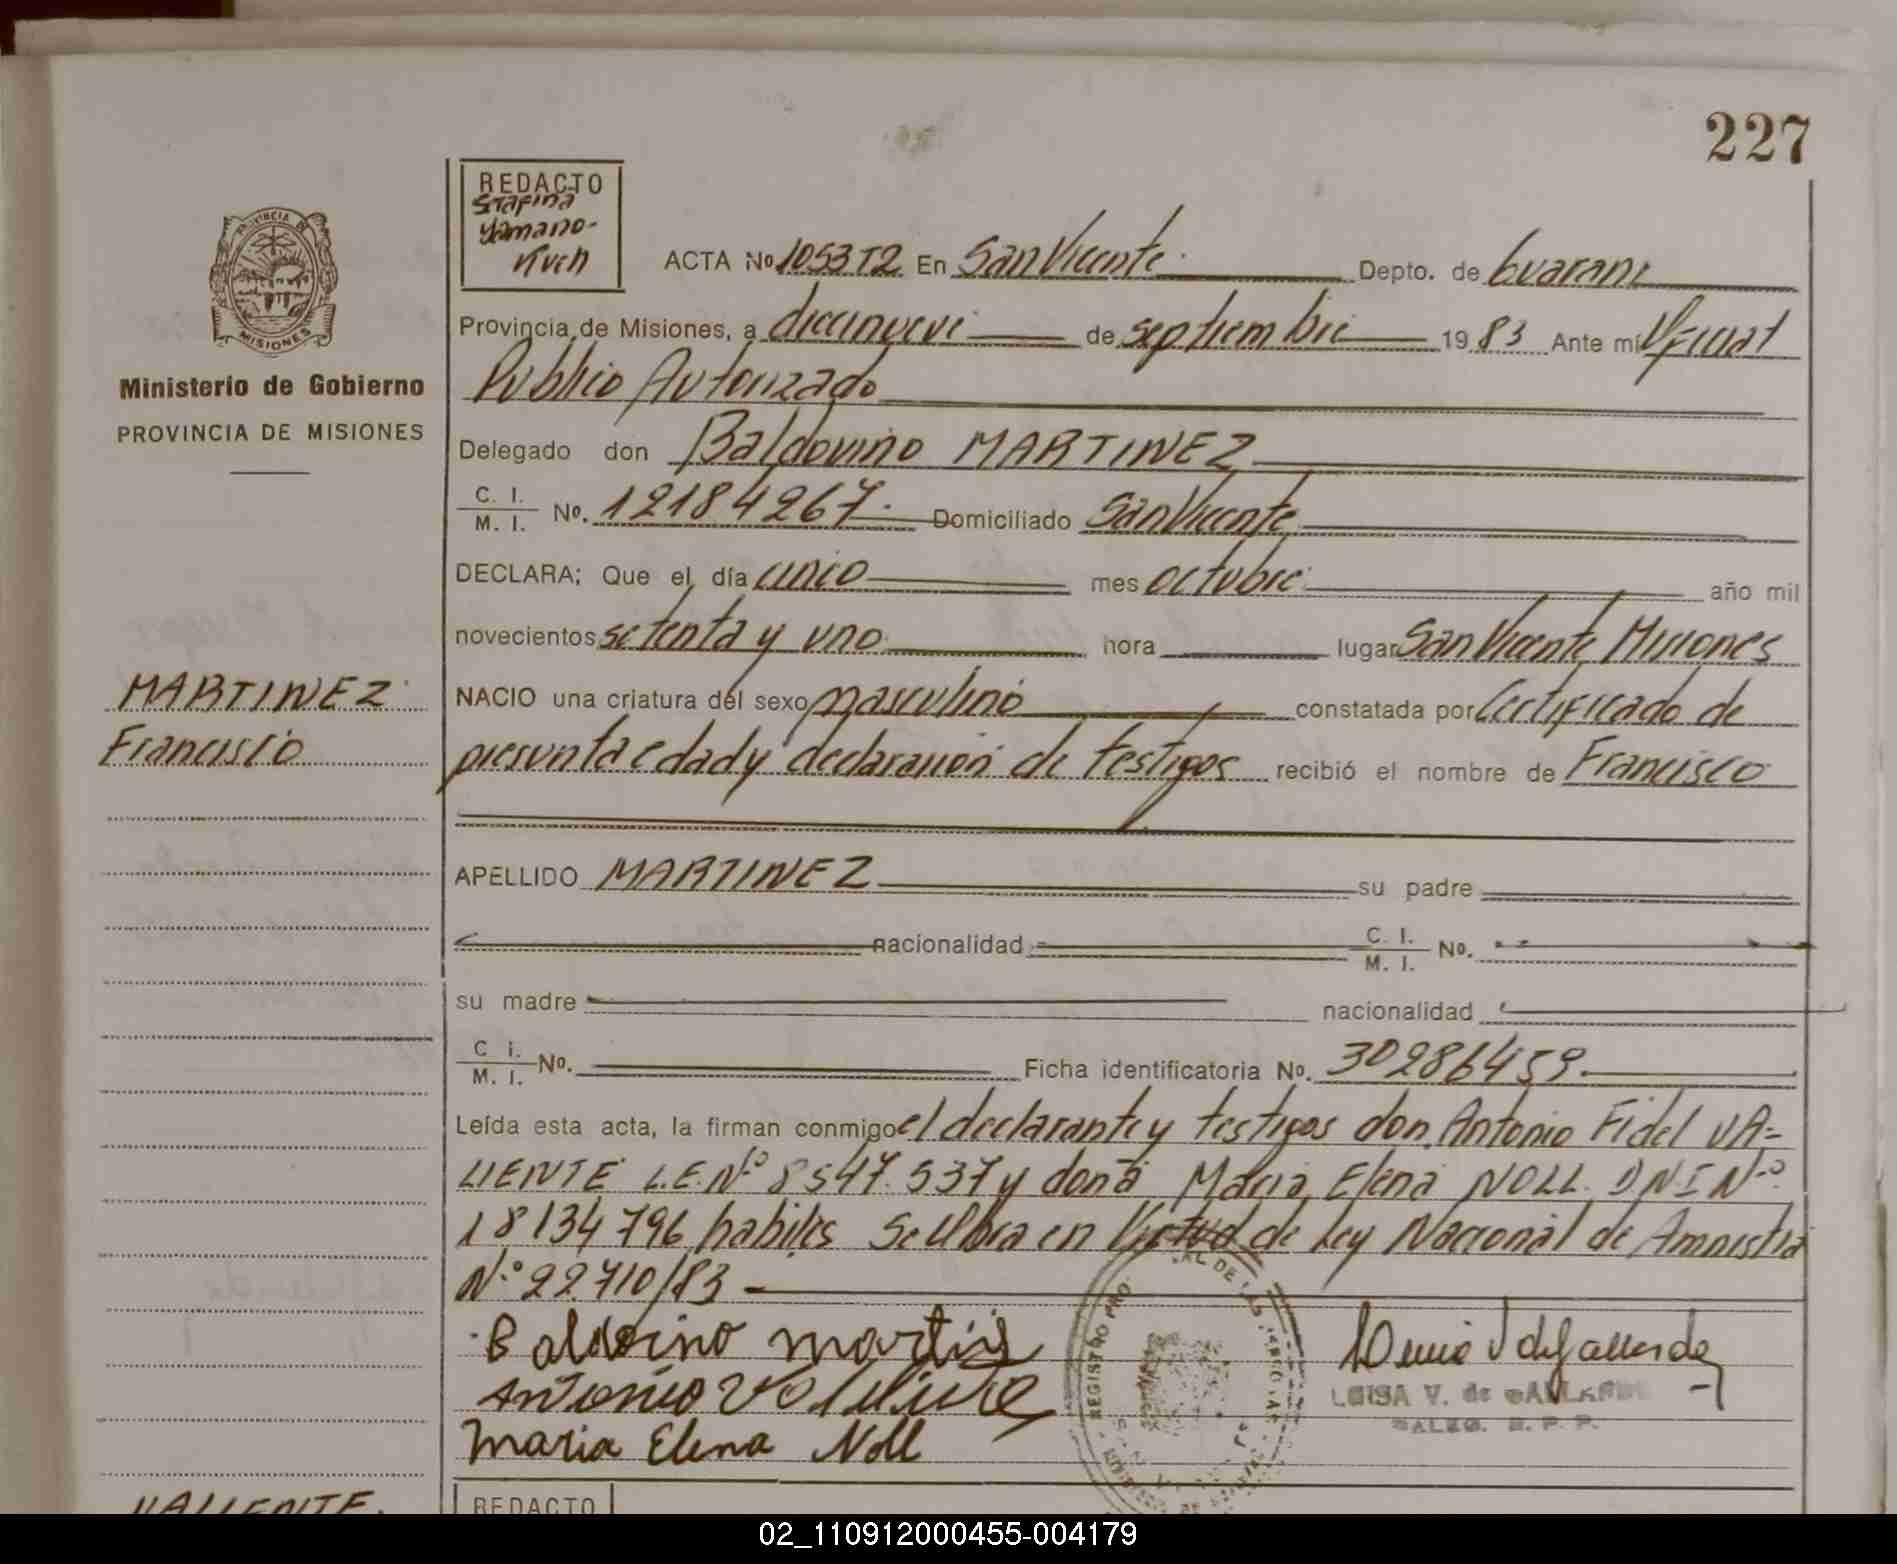 227
REDACTO
ACTA No 1053 T2 En San Vicente Depto. de Guarani
Provincia de Misiones, a diecinueve de septiembre 1983 Ante mi Oficial
Publico Autorizado
Delegado don Baldovino MARTINEZ
C. I.
M. I. No. 12184267. Domiciliado San Vicente
DECLARA; Que el día cinco mes octubre año mil
novecientos setenta y uno hora lugar San Vicente Misiones
NACIO una criatura del sexo masculino constatada por Certificado de
presunta edad y declaración de testigos recibió el nombre de Francisco
APELLIDO MARTINEZ su padre
nacionalidad C. I.
M. I. No.
su madre nacionalidad
C i.
M. I. No. Ficha identificatoria No. 30286459.
Leída esta acta, la firman conmigo el declarante y testigos don Antonio Fidel VA-
LIENTE L.E.Nº 8547.537 y doña Maria Elena NOLL. DNI Nº
18134796 habiles Se labra en Virtud de Ley Nacional de Amnistia
Nº 22.710/83
Baldovino Martinez
Antonio Valiente
Maria Elena Noll
LUISA V. de GALLARDO
PROVINCIA
MISIONES
Ministerio de Gobierno
PROVINCIA DE MISIONES
MARTINEZ
Francisco
VALIENTE.
REDACTO
02_110912000455-004179